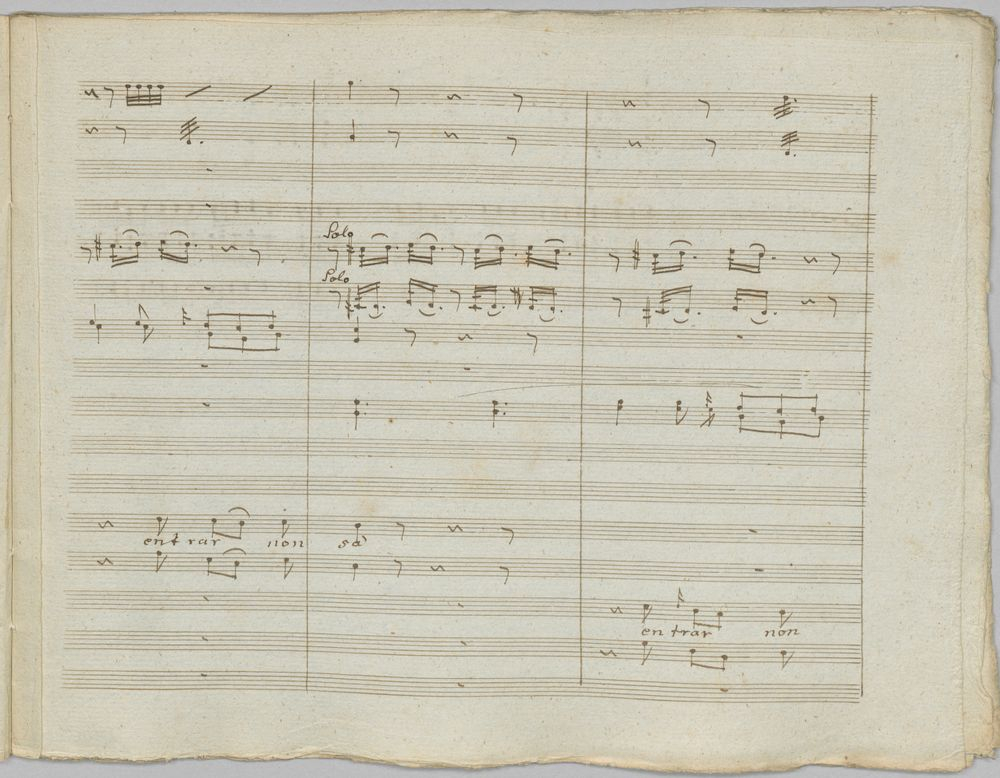 Solo
Solo
entrar non sà
entrar non